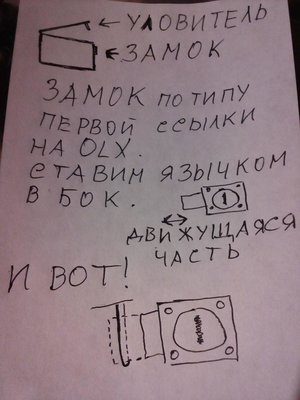 УЛОВИТЕЛЬ
ЗАМОК
ЗАМОК ПО ТИПУ
ПЕРВОЙ ССЫЛКИ
НА OLX.
СТАВИМ ЯЗЫЧКОМ
В БОК.
1
ДВИЖУЩАЯСЯ
ЧАСТЬ
И ВОТ!